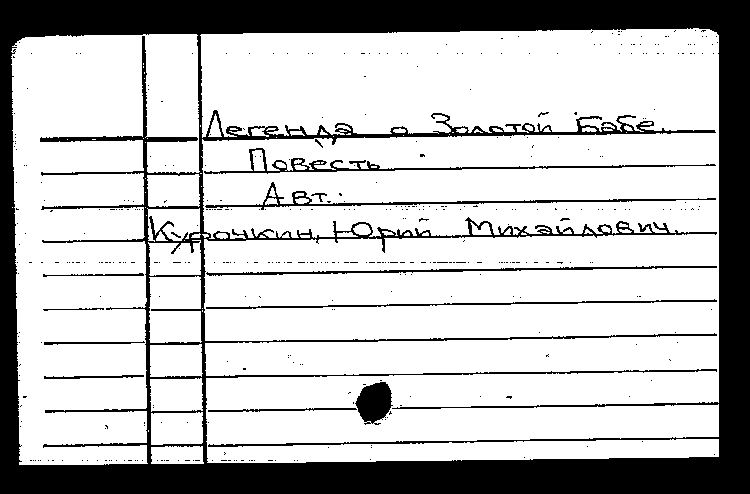 Легенда о Золотой Бабе.
Повесть
Авт.:
Курочкин, Юрий Михайлович.